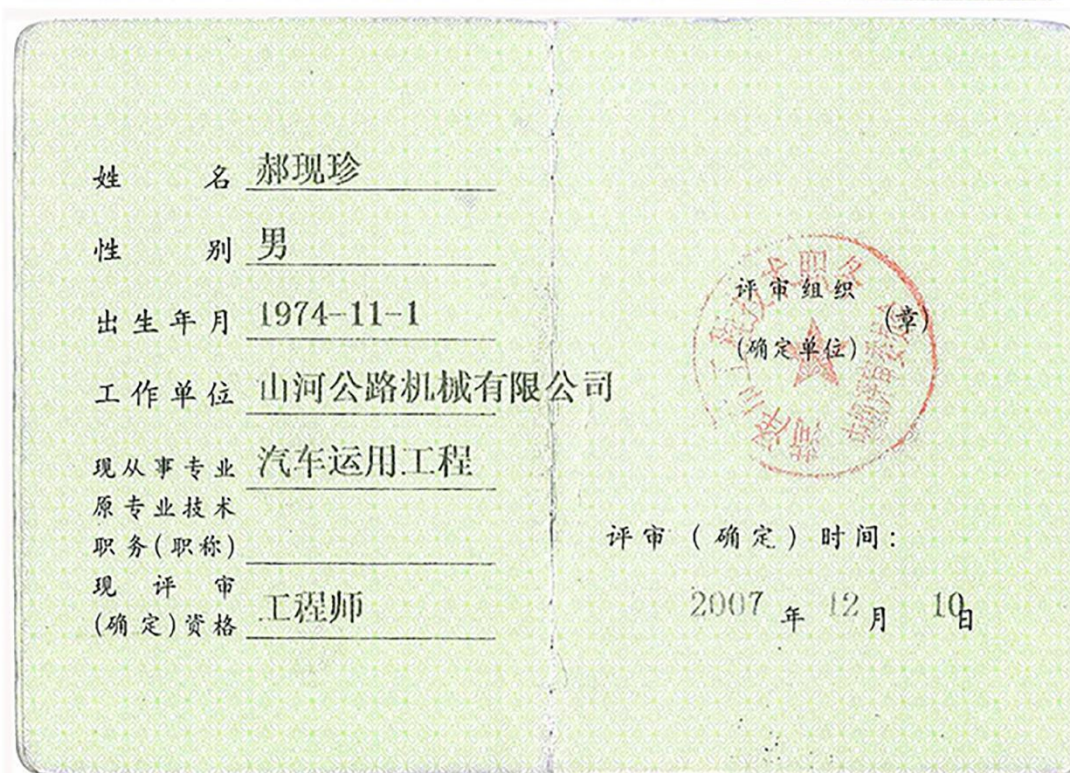 姓 名 郝现珍
性 别 男
出生年月 1974-11-1
工作单位 山河公路机械有限公司
现从事专业 汽车运用工程
原专业技术
职务(职称)
现 评 审
(确定)资格 工程师
评审组织
(章)
(确定单位)
评审(确定)时间:
2007 年 12 月 10 日